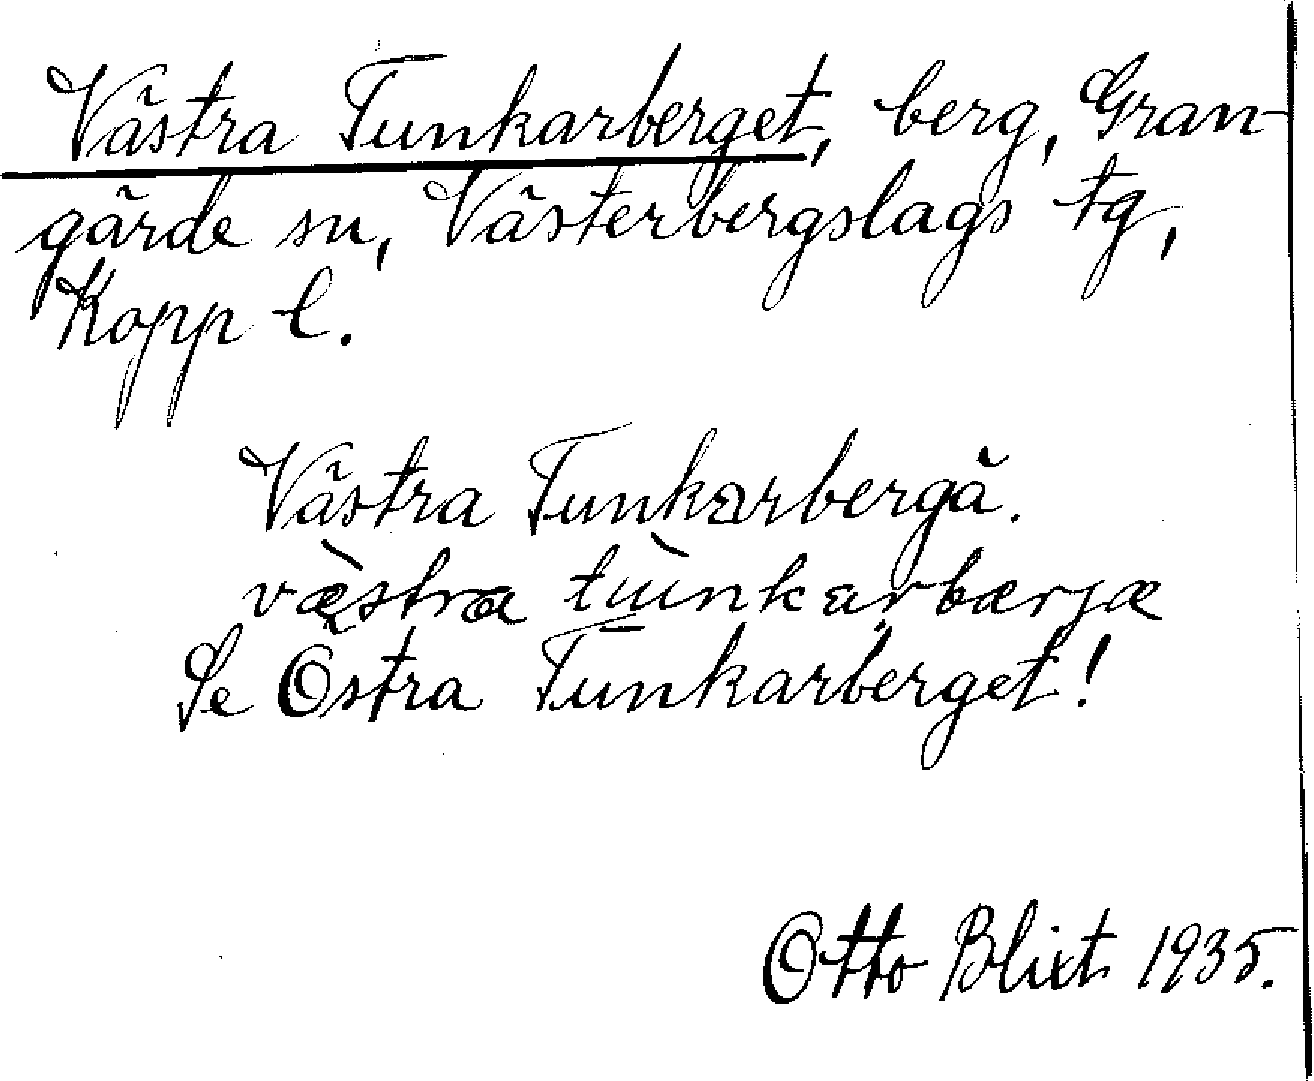 Västra Tunkarberget, berg, Gran-
gärde sn, Västerbergslags tg,
Kopp l.
Västra Tunkarbergä.
Se Östra Tunkarberget!
Otto Blixt 1935.